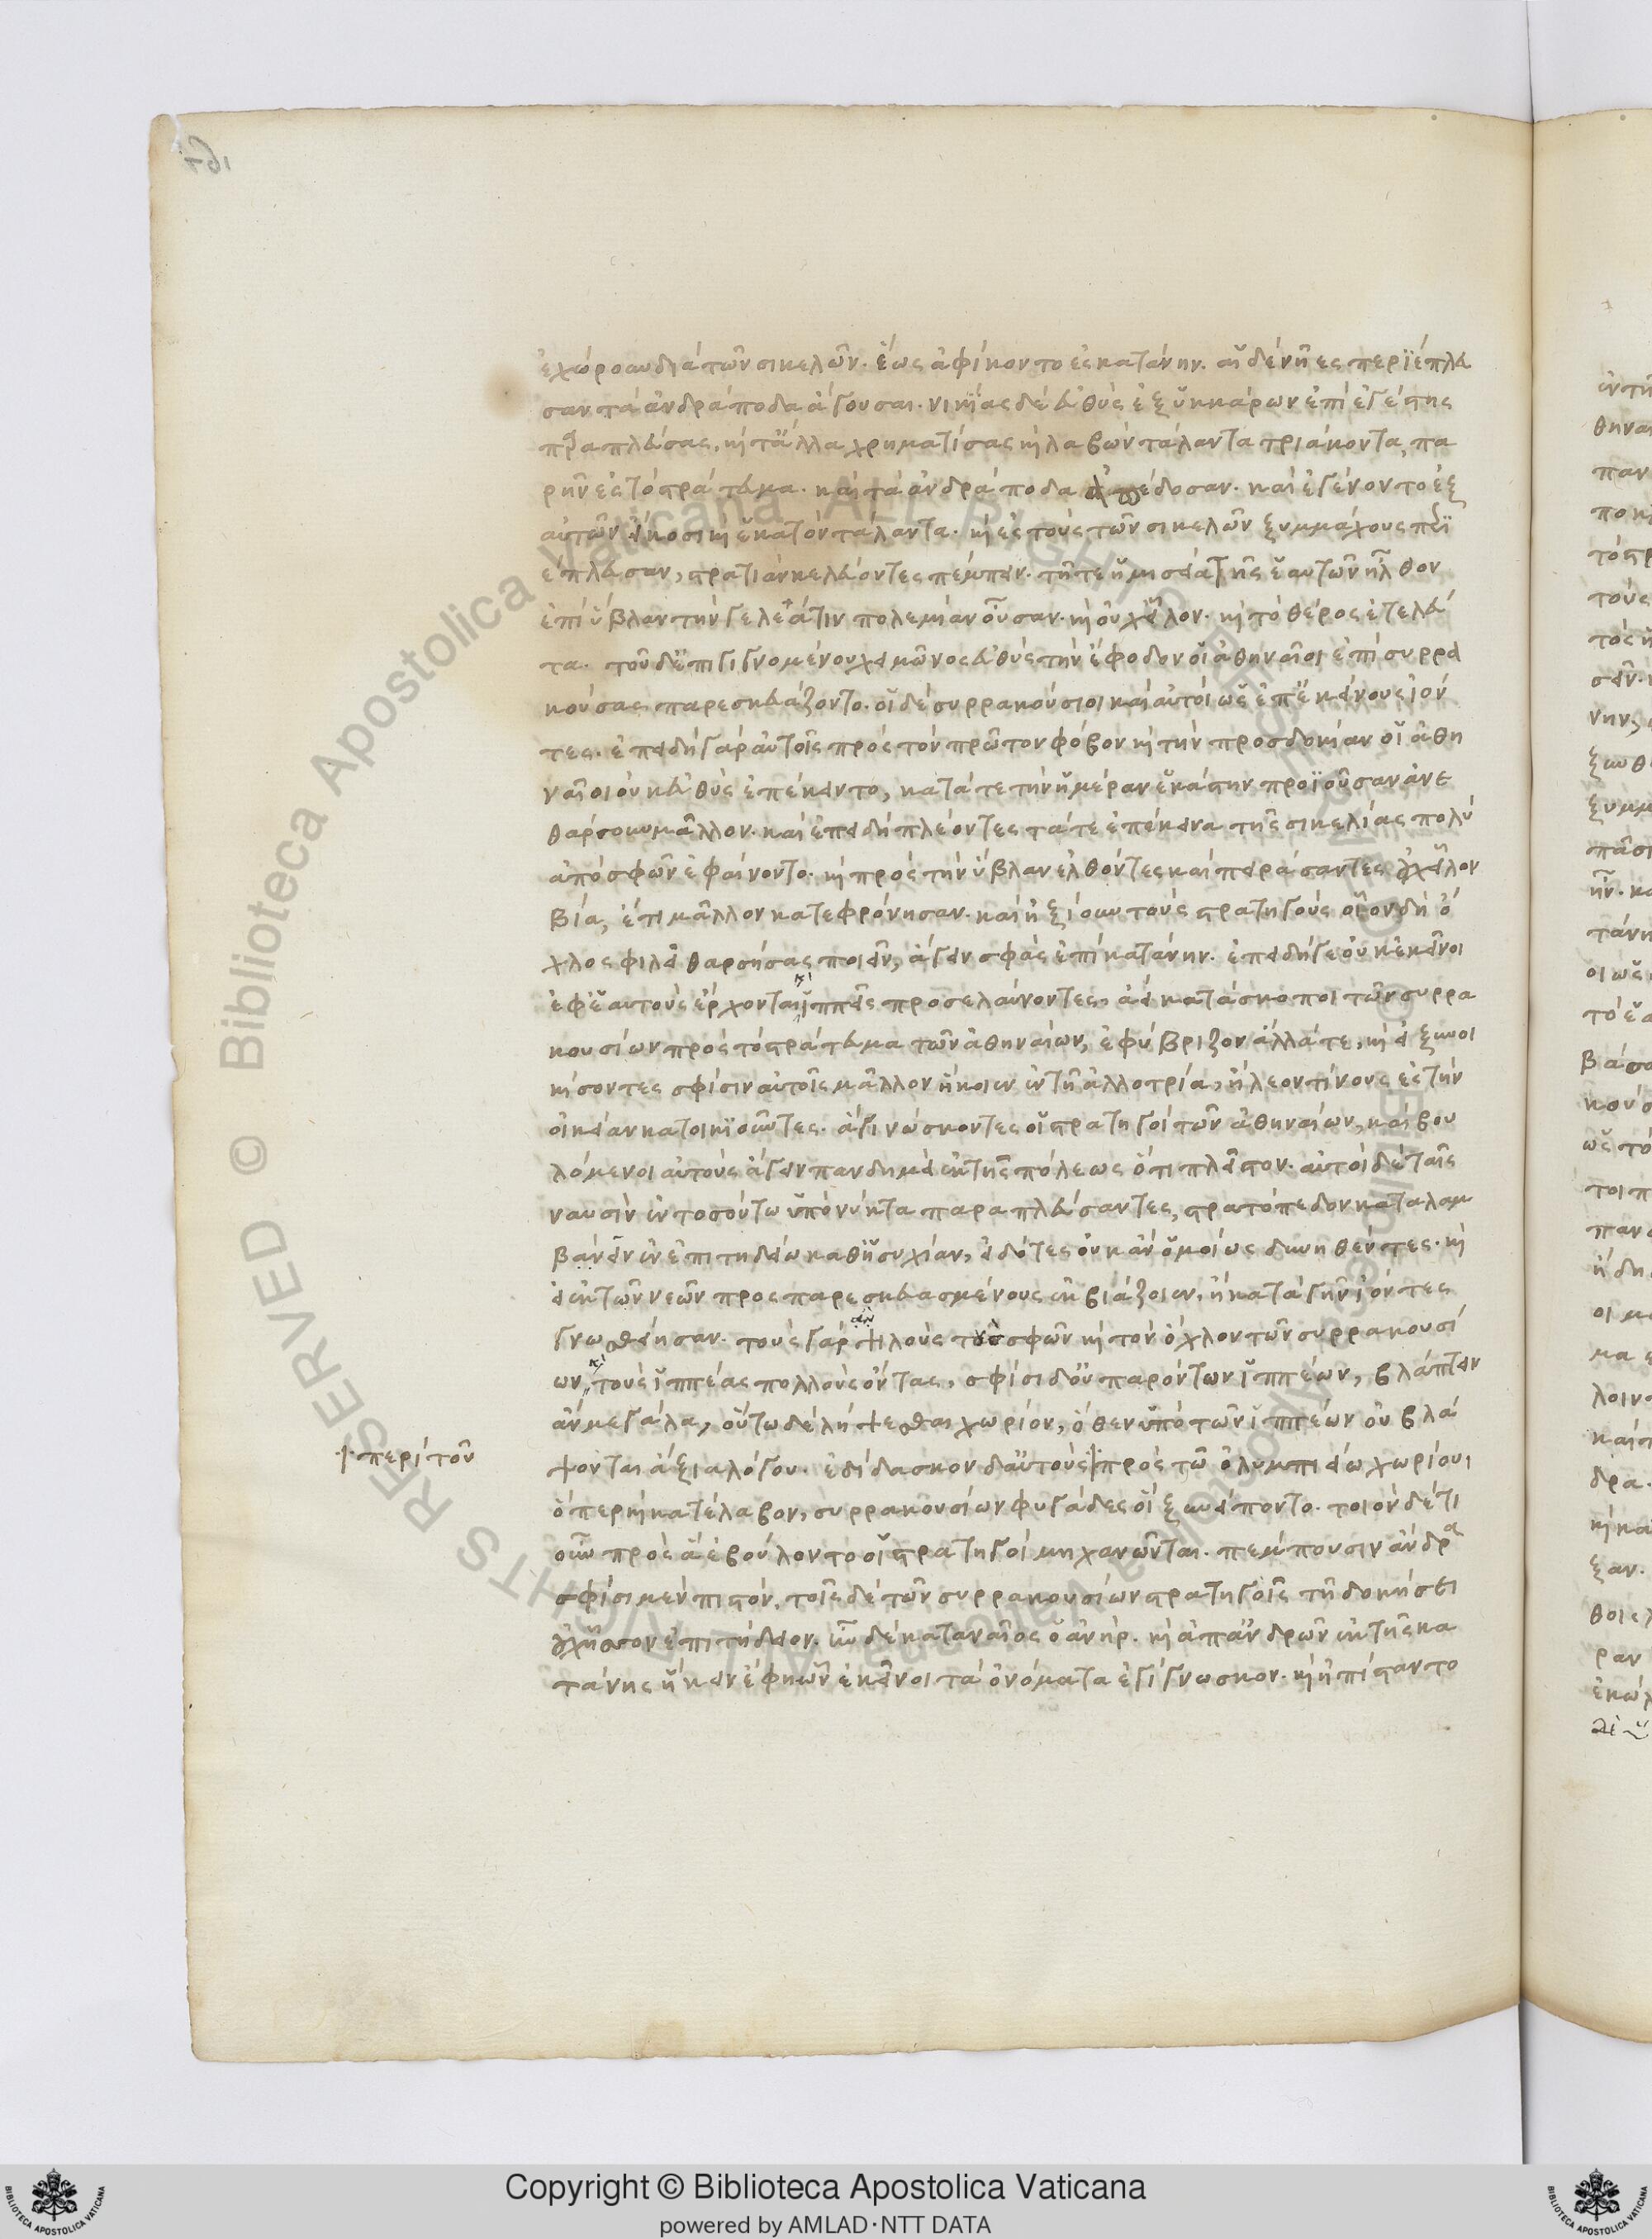 ἐχώρουν διὰ τῶν σικελῶν. ἕως ἀφίκοντο ἐς κατάνην. αἱ δὲ νῆες περιέπλευ
σαν τὰ ἀνδράποδα ἄγουσαι. νικίας δὲ εὐθὺς ἐξ ὑκκάρων ἐπὶ ἐγέστης
παραπλεύσας, καὶ τἄλλα χρηματίσας καὶ λαβὼν τάλαντα τριάκοντα, πα
ρῆν ἐς τὸ στράτευμα. καὶ τὰ ἀνδράποδα ἀπέδοσαν. καὶ ἐγένοντο ἐξ
αὐτῶν εἴκοσι καὶ ἑκατὸν τάλαντα. καὶ ἐς τοὺς τῶν σικελῶν ξυμμάχους περι
έπλευσαν, στρατιὰν κελεύοντες πέμπειν. τῆ τε ἡμισεία τῆς ἑαυτῶν ἦλθον
ἐπὶ ὕβλαν τὴν γελεᾶτιν πολεμίαν οὖσαν. καὶ οὐχ εἷλον. καὶ τὸ θέρος ἐτελεύ
τα. τοῦ δ' ἐπιγιγνομένου χειμῶνος εὐθὺς τὴν ἔφοδον οἱ ἀθηναῖοι ἐπὶ συρρα
κούσας παρεσκευάζοντο. οἱ δὲ συρρακούσιοι καὶ αὐτοὶ ὡς ἐπ' ἐκείνους ἰόν
τες. ἐπειδὴ γὰρ αὐτοῖς πρὸς τὸν πρῶτον φόβον καὶ τὴν προσδοκίαν οἱ ἀθη
ναῖοι οὐκ εὐθὺς ἐπέκειντο, κατά τε τὴν ἡμέραν ἑκάστην προϊοῦσαν ἀνε
θάρσουν μᾶλλον. καὶ ἐπειδὴ πλέοντες τά τε ἐπέκεινα τῆς σικελίας πολὺ
ἀπὸ σφῶν ἐφαίνοντο. καὶ πρὸς τὴν ὕβλαν ἐλθόντες καὶ πειράσαντες οὐχ εἷλον
βία, ἔτι μᾶλλον κατεφρόνησαν. καὶ ἠξίουν τοὺς στρατηγοὺς οἷον δὴ ὄ
χλος φιλεῖ θαρσήσας ποιεῖν, ἄγειν σφᾶς ἐπὶ κατάνην. ἐπειδή γε οὐκ ἐκεῖνοι
ἐφ' ἑαυτοὺς ἔρχονται, καὶ ἱππεῖς προσελαύνοντες, ἀεὶ κατάσκοποι τῶν συρρα
κουσίων πρὸς τὸ στράτευμα τῶν ἀθηναίων, ἐφύβριζον ἄλλά τε, καὶ εἰ ξυνοι
κήσοντες σφίσιν αὐτοῖς μᾶλλον ἥκοιεν ἐν τῆ ἀλλοτρία, ἢ λεοντίνους ἐς τὴν
οἰκείαν κατοικιοῦντες. ἃ γινώσκοντες οἱ στρατηγοὶ τῶν ἀθηναίων, καὶ βου
λόμενοι αὐτοὺς ἄγειν πανδημεὶ ἐκ τῆς πόλεως ὅτι πλεῖστον. αὐτοὶ δὲ ταῖς
ναυσὶν ἐν τοσούτω ὑπὸ νύκτα παραπλεύσαντες, στρατόπεδον καταλαμ
βάνειν ἐν ἐπιτηδείω καθ' ἡσυχίαν, εἰδότες οὐκ ἂν ὁμοίως δυνηθέντες. καὶ
εἰ ἐκ τῶν νεῶν προς παρεσκευασμένους ἐκβιάζοιεν, ἢ κατὰ γῆν ἰόντες
γνωσθείησαν. τοὺς γὰρ ἂν ψιλοὺς τοὺς σφῶν καὶ τὸν ὄχλον τῶν συρρακουσί
ων καὶ τοὺς ἱππέας πολλοὺς ὄντας, σφίσι δ' οὐ παρόντων ἱππέων, βλάπτειν
ἂν μεγάλα, οὕτω δὲ λήψεσθαι χωρίον, ὅθεν ὑπὸ τῶν ἱππέων οὐ βλά
ψονται ἄξια λόγου. ἐδίδασκον δ' αὐτοὺς πρὸς τῶ ὀλυμπιείω χωρίου,
περὶ τοῦ
ὅπερ καὶ κατέλαβον, συρρακουσίων φυγάδες οἳ ξυνείποντο. τοιόνδε τι
οὖν πρὸς ἃ ἐβούλοντο οἱ στρατηγοὶ μηχανῶνται. πέμπουσιν ἄνδρα
σφίσι μὲν πιστόν, τοῖς δὲ τῶν συρρακουσίων στρατηγοῖς τῆ δοκήσει
οὐχ ἧσσον ἐπιτήδειον. ἦν δὲ καταναῖος ὁ ἀνήρ. καὶ ἀπ' ἀνδρῶν ἐκ τῆς κα
τάνης ἥκειν ἔφη ὧν ἐκεῖνοι τὰ ὀνόματα ἐγίγνωσκον. καὶ ἠπίσταντο